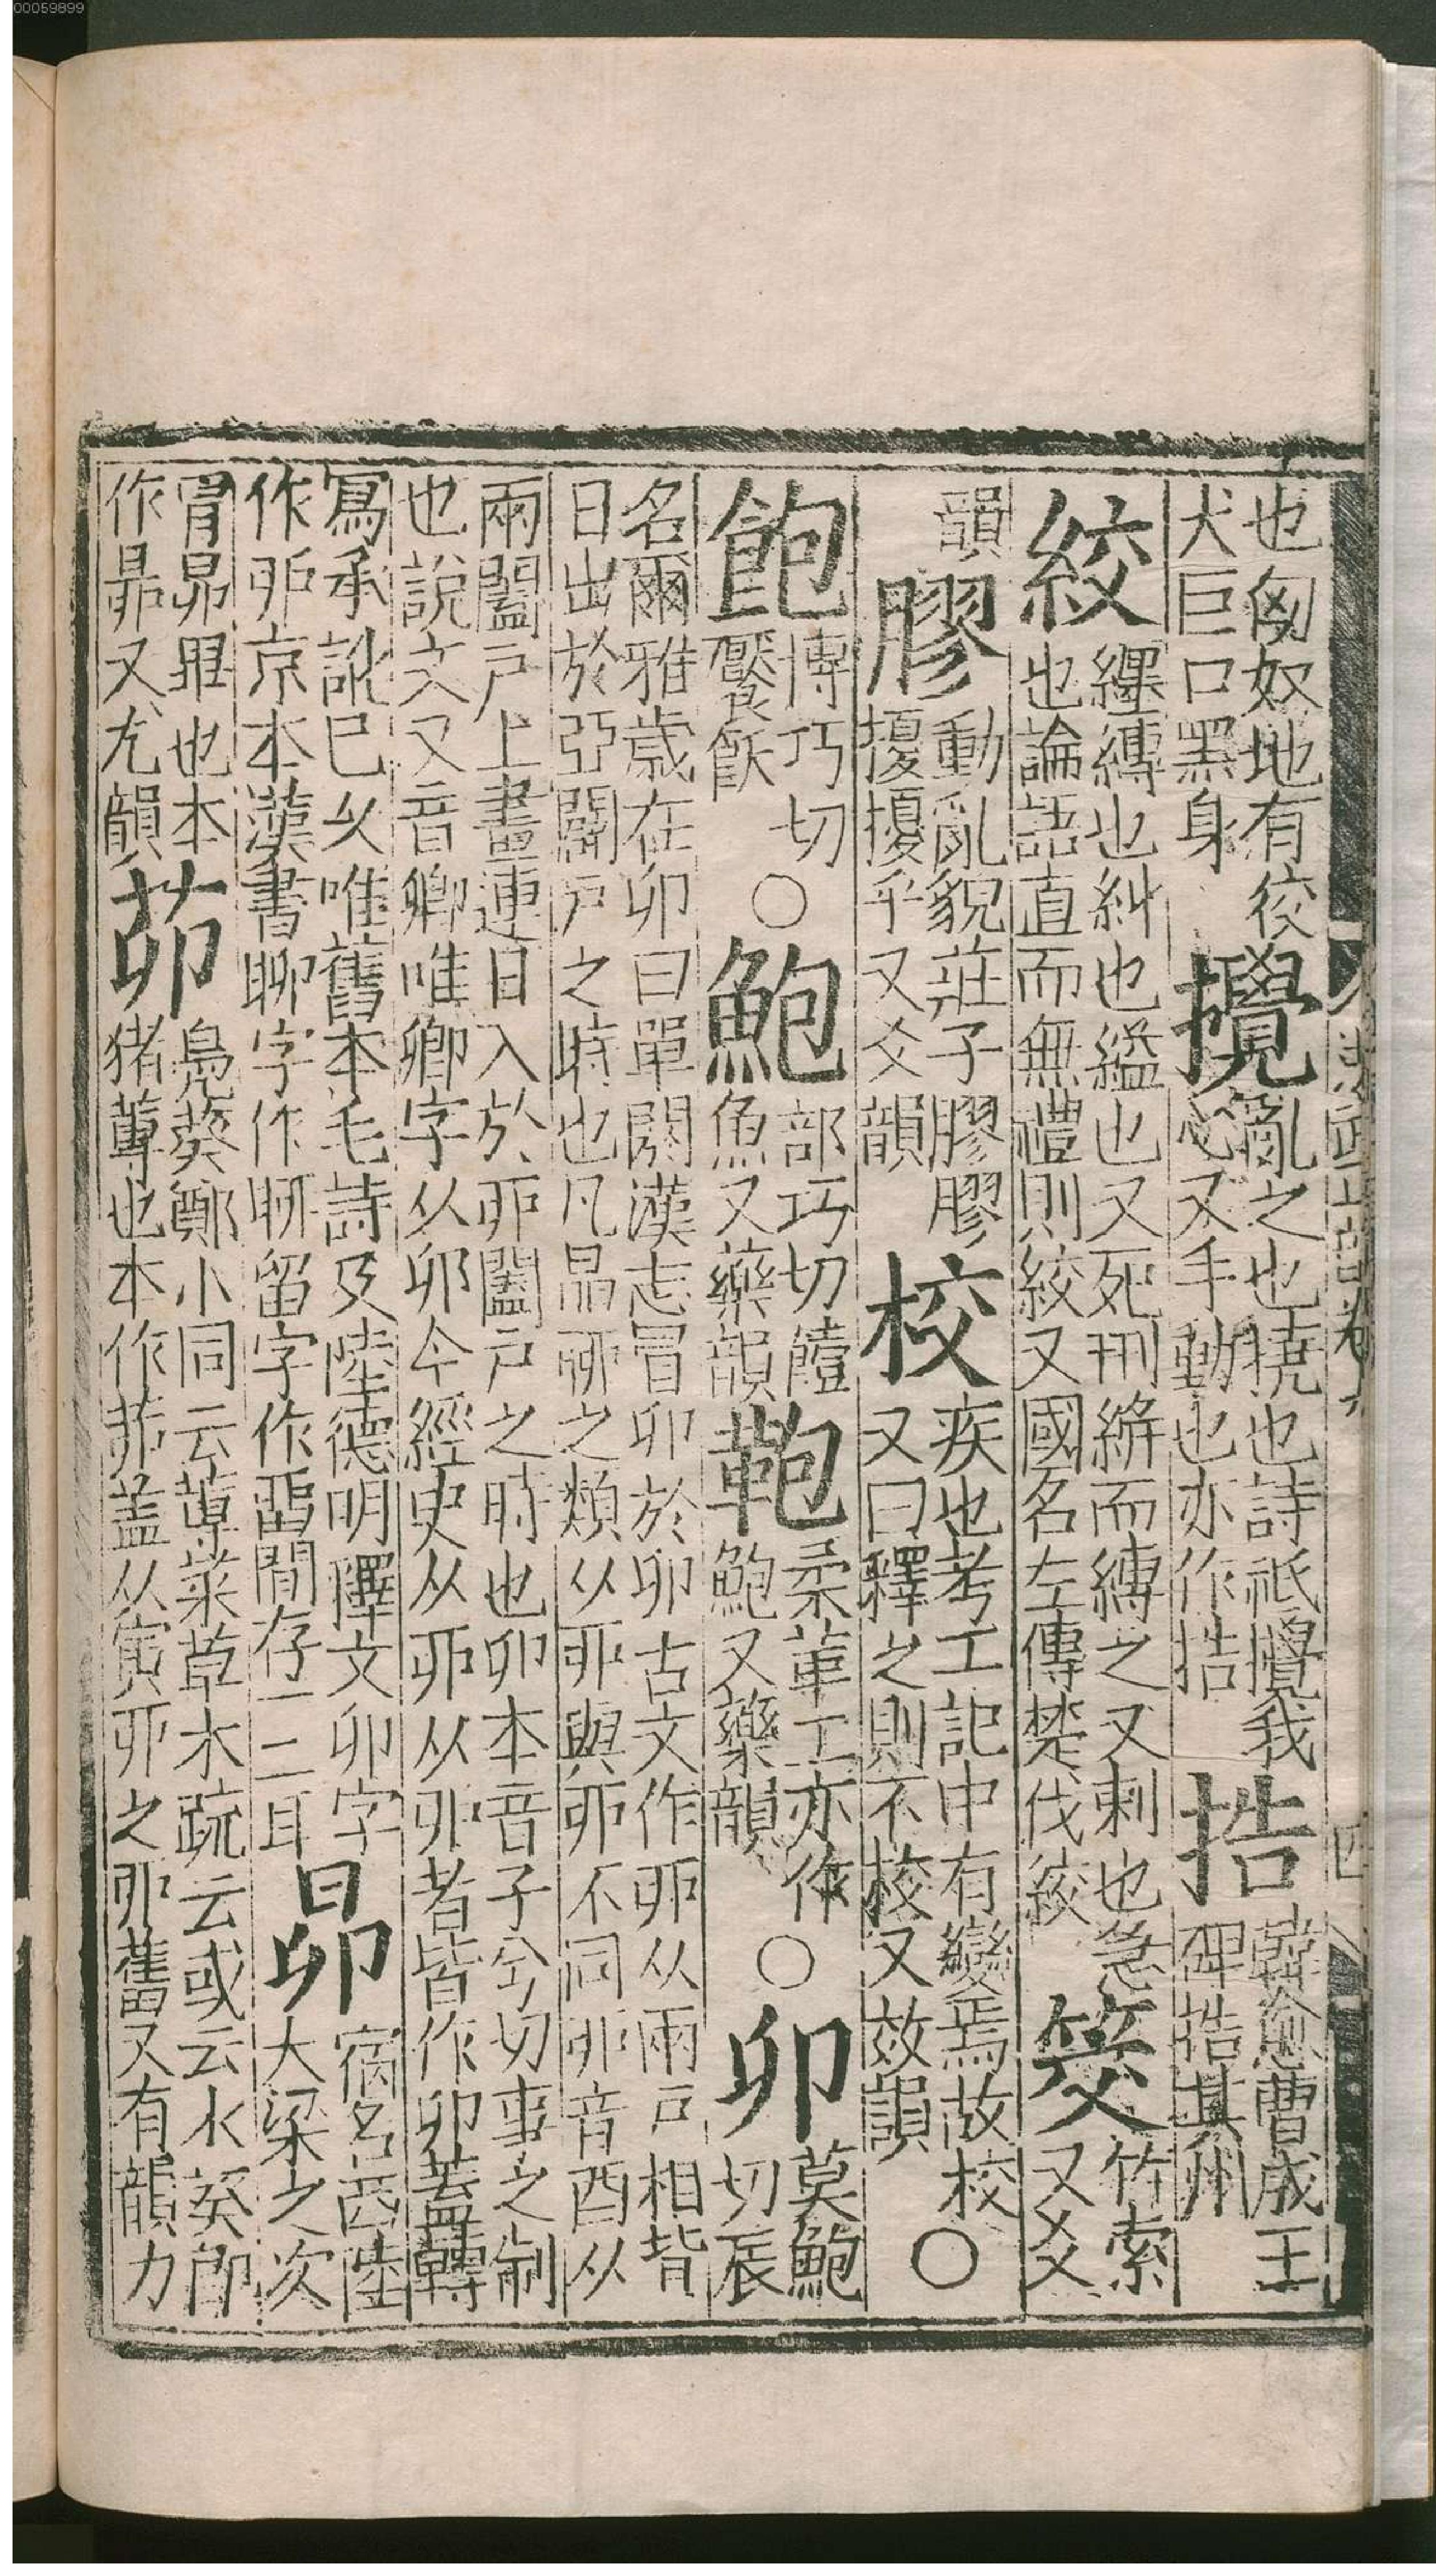 00059899
也匈奴地有狡
犬巨口黑身
攪
亂之也撓也詩祇攪我
心又手動也亦作捁
捁
韓愈曹成王
碑捁其州
絞
縲縛也糾也縊也又死刑絣而縛之又刺也急
也論語直而無禮則絞又國名左傳楚伐絞
筊
竹索
又爻
韻
膠
動亂貌莊子膠膠
擾擾乎又爻韻
校
疾也考工記中有變焉故校
又曰釋之則不校又效韻
○
飽
博巧切
饜飫
○
鮑
部巧切饐
魚又藥韻
鞄
柔革工亦作
鮑又藥韻
○
卯
莫鮑
切辰
名爾雅歲在卯曰單閼漢志冒卯於卯古文作丣从兩戶相背
日出於亞闢戶之時也凡晶丣之類从丣與丣不同丣音酉从
兩闔戶上畫連目入於丣闔戶之時也卯本音子兮切事之制
也說文又音卿唯卿字从卯今經史从丣从卯者皆作卯蓋轉
寫承訛已久唯舊本毛詩及陸德明釋文卯字
作丣京本漢書聊字作聊留字作留間存一二耳
昴
宿名西陸
大梁之次
胃昴畢也本
作昴又尤韻
茆
鳧葵鄭小同云蓴菜草木疏云或云水葵即
猪蓴也本作茆盖从寅丣之丣舊又有韻力